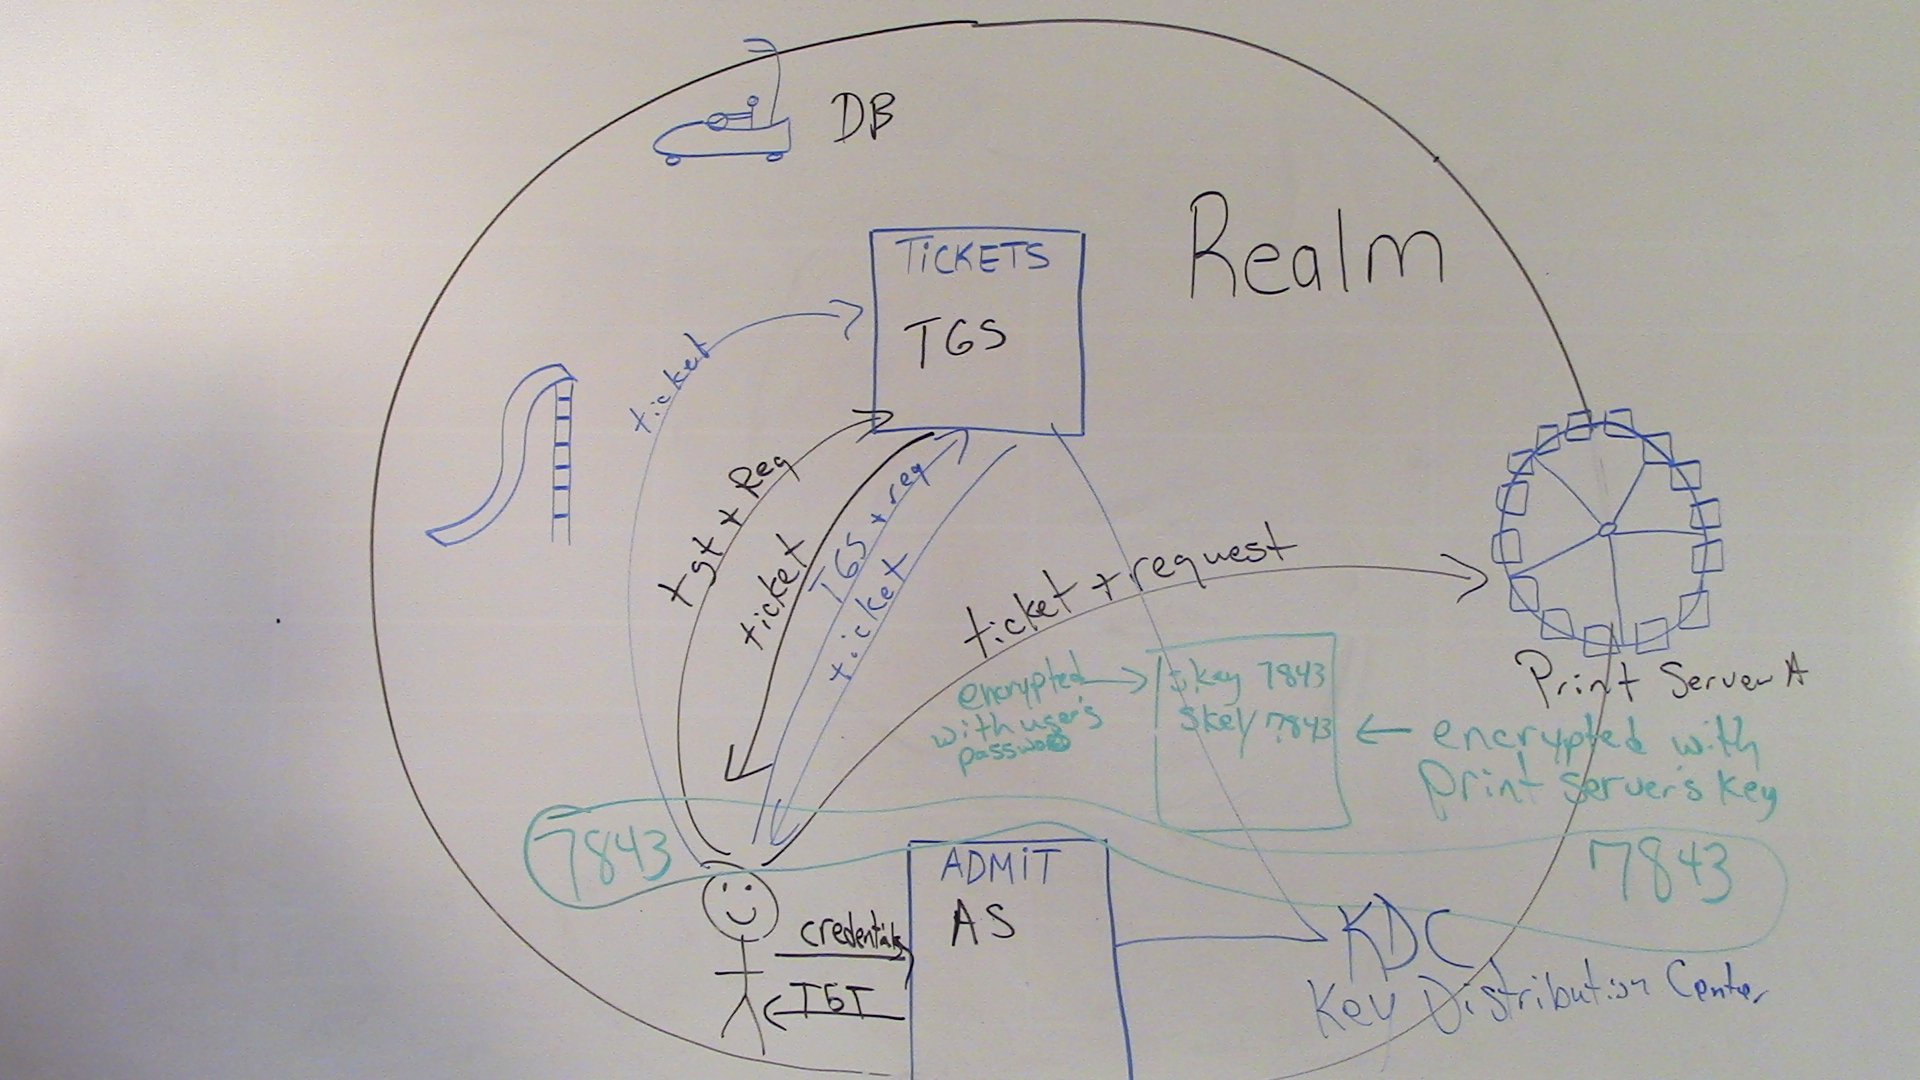 DB
Realm
TICKETS
TGS
ticket
tgt + Req
ticket
TGS + req
ticket
ticket + request
Print Server A
encrypted
with user's
skey 7843
skey 7843
encrypted with
print server's key
7843
7843
ADMIT
AS
credentials
TGT
KDC
Key Distribution Center